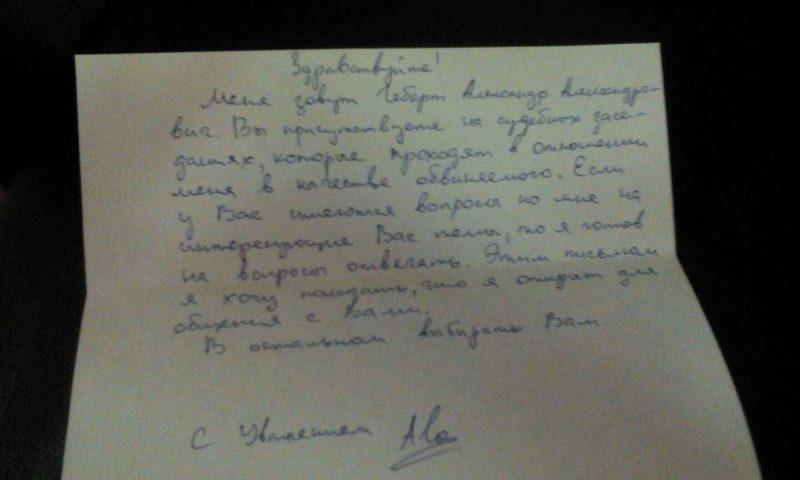 Здравствуйте!
Меня зовут Геберт Александр Александро-
вич. Вы присутствуете на судебных засе-
даниях, которые проходят в отношении
меня в качестве обвиняемого. Если
у Вас имеются вопросы ко мне на
интересующие Вас темы, то я готов
на вопросы отвечать. Этим письмом
я хочу показать, что я открыт для
общения с Вами.
В остальном выбирать Вам.
С Уважением